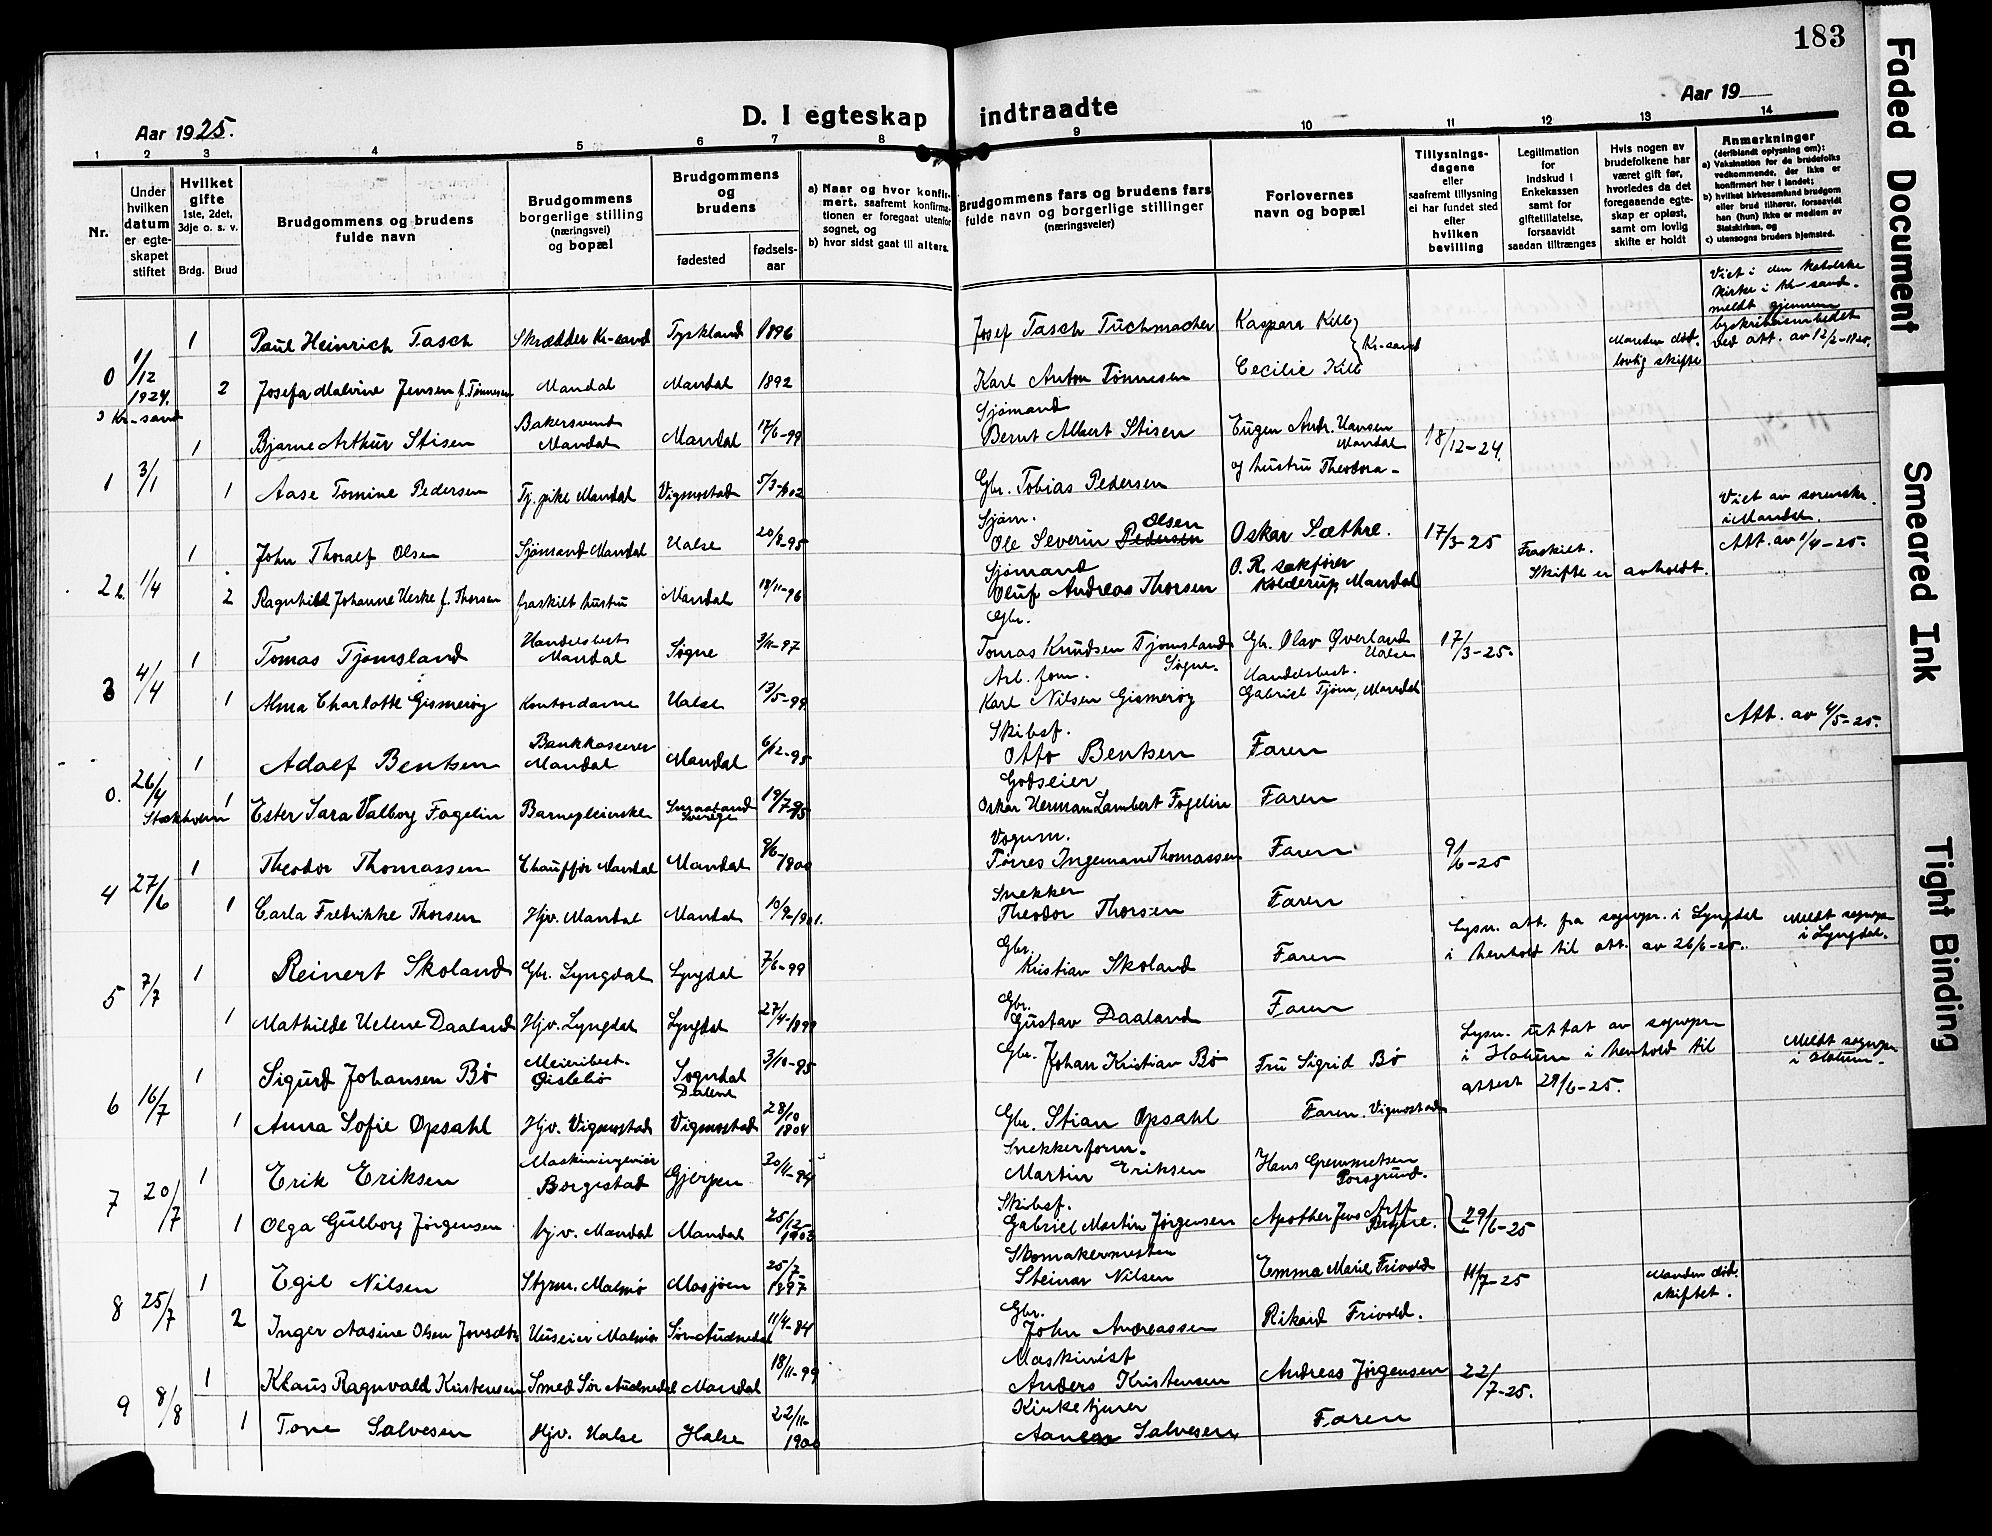 183
Aar 1925.
D. I egteskap indtraadte
Aar 19
1 2 3 4 5 6 7 8 9 10 11 12 13 14
Nr.
Under hvilken datum er egteskapet stiftet
Hvilket gifte
1ste, 2det, 3dje o. s. v.
Brdg. Brud
Brudgommens og brudens fulde navn
Brudgommens borgerlige stilling (næringsvei) og bopæl
Brudgommens og brudens
fødested
fødsels-aar
a) Naar og hvor konfirmert, saafremt konfirmationen er foregaat utenfor sognet, og
b) hvor sidst gaat til alters.
Brudgommens fars og brudens fars fulde navn og borgerlige stillinger (næringsveier)
Forlovernes navn og bopæl
Tillysnings-dagene eller saafremt tillysning ei har fundet sted efter hvilken bevilling
Legitimation for indskud i Enkekassen samt for giftetillatelse, forsaavidt saadan tiltrænges
Hvis nogen av brudefolkene har været gift før, hvorledes da det foregaaende egteskap er opløst, samt om lovlig skifte er holdt
Anmerkninger
(deriblandt oplysning om):
a) Vaksination for de brudefolks vedkommende, der ikke er konfirmert her i landet;
b) hvilket kirkesamfund brudgom eller brud tilhører, forsaavidt han (hun) ikke er medlem av Statskirken, og
c) utensogns bruders hjemsted.
0 1/12 1924. Kr-sand
1 Paul Heinrich Tasch Skrædder Kr-sand Tyskland 1896 Josef Tasch Tuchmacher Kaspara Kill
2 Josefa Malvine Jensen f. Tønnesen Mandal Mandal 1892 Karl Anton Tønnesen Cecilie Kill Kr-sand
Manden død. lovlig skifte
Viet i den katolske kirke i Kr-sand. meldt gjennem byskriverembedet ved att. av 12/2-1925.
1 3/1
1 Bjarne Arthur Stisen Bakersvend Mandal Mandal 17/6-99 Sjømand Bernt Albert Stisen Eugen Andr. Hansen Mandal 18/12-24.
1 Aase Tomine Pedersen Tj. pike Mandal Vigmostad 5/3-1902 Gbr. Tobias Pedersen og hustru Theodora
2 1/4
1 John Thoralf Olsen Sjømand Mandal Halse 20/8-95 Sjøm. Ole Severin Pedersen Olsen Oskar Sæthre. 17/3-25
2 Ragnhild Johanne Heske f. Thorsen fraskilt hustru Mandal 19/11-96 Sjømand Oluf Andreas Thorsen O. R. sakfører Kolderup, Mandal
Fraskilt. Skifte er avholdt.
Viet av sorenskr. i Mandal. Att. av 1/4-25.
3 4/4
1 Tomas Tjomsland Handelsbest. Mandal Søgne 3/11-97 Gbr. Tomas Knudsen Tjomsland Søgne. Gbr. Olav Øverland Halse 17/3-25.
1 Alma Charlotte Gismerøy Kontordame Halse 13/5-99 Arb. form. Karl Nilsen Gismerøy Handelsbest. Gabriel Tjøm, Mandal
0. 26/4 Stockholm
1 Adolf Bentsen Bankkasserer Mandal Mandal 6/12-95 Skibsf. Otto Bentsen Faren Att. av 4/5-25.
1 Ester Sara Valborg Fagelin Barnepleierske Smaaland Sverige 19/7-95 Godseier Oskar Herman Lambert Fogelin Faren
4 27/6
1 Theodor Thomassen Chauffør Mandal Mandal 8/6-1900 Vognm. Tørres Ingeman Thomassen Faren 9/6-25
1 Carla Fredrikke Thorsen Hjv. Mandal Mandal 10/9-1901. Snekker Theodor Thorsen Faren
5 7/7
1 Reinert Skoland Gbr. Lyngdal Lyngdal 7/6-99 Gbr. Kristian Skoland Faren
Lysn. att. fra sognepr. i Lyngdal i henhold til att. av 26/6-25. Meldt sognepr i Lyngdal.
1 Mathilde Helene Daaland Hjv. Lyngdal Lyngdal 27/4-1899 Gbr. Gustav Daaland Faren
6 16/7
1 Sigurd Johansen Bø Meieribest. Øislebø Sogndal Dalene 3/10-95 Gbr. Johan Kristian Bø Fru Sigrid Bø
Lysn. uttat av sognepr i Holum i henhold til attest 29/6-25. Meldt sognepr i Holum.
1 Anna Sofie Opsahl Hjv. Vigmostad Vigmostad 28/10 1904 Gbr. Stian Opsahl Faren. Vigmostad
7 20/7
1 Erik Eriksen Maskiningeniør Borgestad Gjerpen 20/11-94 Snekkerform. Martin Eriksen Hans Gremmetsen Porsgrund.
1 Olga Gulborg Jørgensen hjv. Mandal Mandal 25/12 1903 Skibsf. Gabriel Martin Jørgensen Apother Jens Arff Bryne. 29/6-25
8 25/7
1 Egil Nilsen Styrm. Malmø Mosjøen 25/7 1897 Skomakermester Steinar Nilsen Emma Marie Frivold 11/7-25 Manden død. skiftet.
2 Inger Aasine Olsen Huseier Malmø Sør-Audnedal 11/4-84 Gbr. John Andreassen Rikard Frivold.
9 8/8
1 Klaus Ragnvald Kristensen Smed Sør Audnedal Mandal 18/11-99 Maskinist Anders Kristensen Andreas Jørgensen 22/7-25.
1 Tone Salvesen Hjv. Halse Halse 22/11-1900 Kirketjener Salvesen Faren
Faded Document
Smeared Ink
Tight Binding